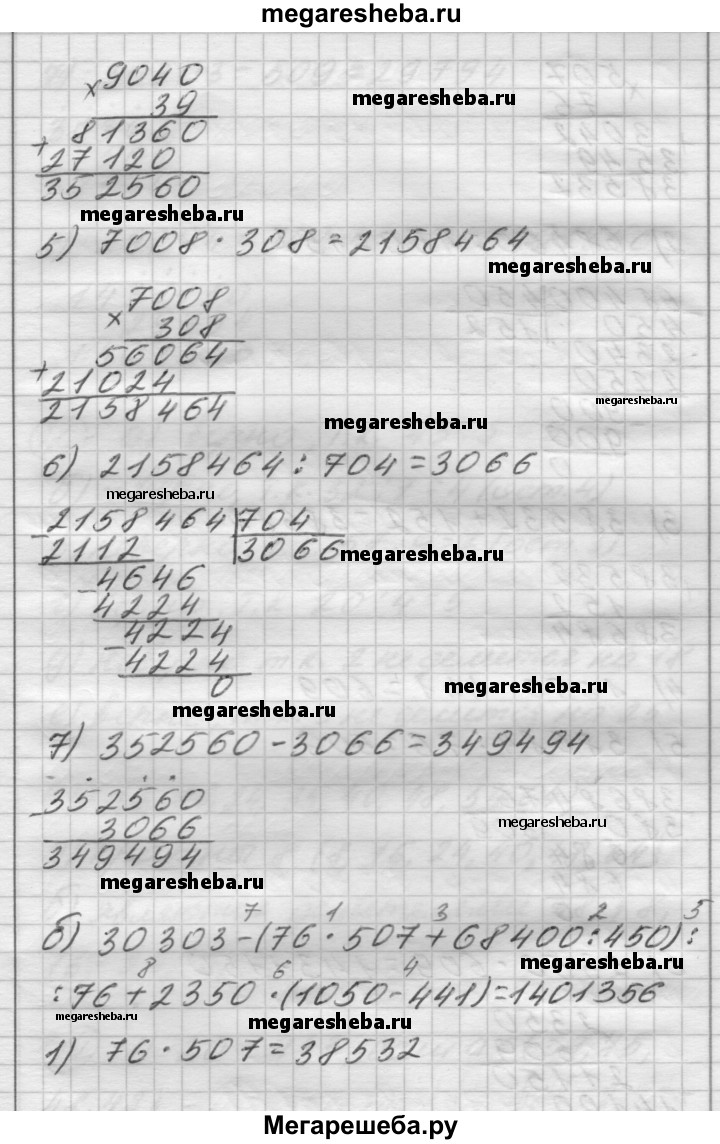 megaresheba.ru
× 9040
39
megaresheba.ru
+ 81360
27120
352560
megaresheba.ru
5) 7008 · 308 = 2158464
megaresheba.ru
× 7008
308
+ 56064
21024
megaresheba.ru
2158464
megaresheba.ru
6) 2158464 : 704 = 3066
megaresheba.ru
- 2158464 | 704
2112 3066
megaresheba.ru
- 4646
4224
- 4224
4224
0
megaresheba.ru
megaresheba.ru
7) 352560 - 3066 = 349494
- 352560
3066
megaresheba.ru
349494
megaresheba.ru
7 1 3 2 5
б) 30303 - (76 · 507 + 68400 : 450) :
megaresheba.ru
8 6 4
: 76 + 2350 · (1050 - 441) = 1401356
megaresheba.ru
megaresheba.ru
1) 76 · 507 = 38532
Мегарешеба.ру